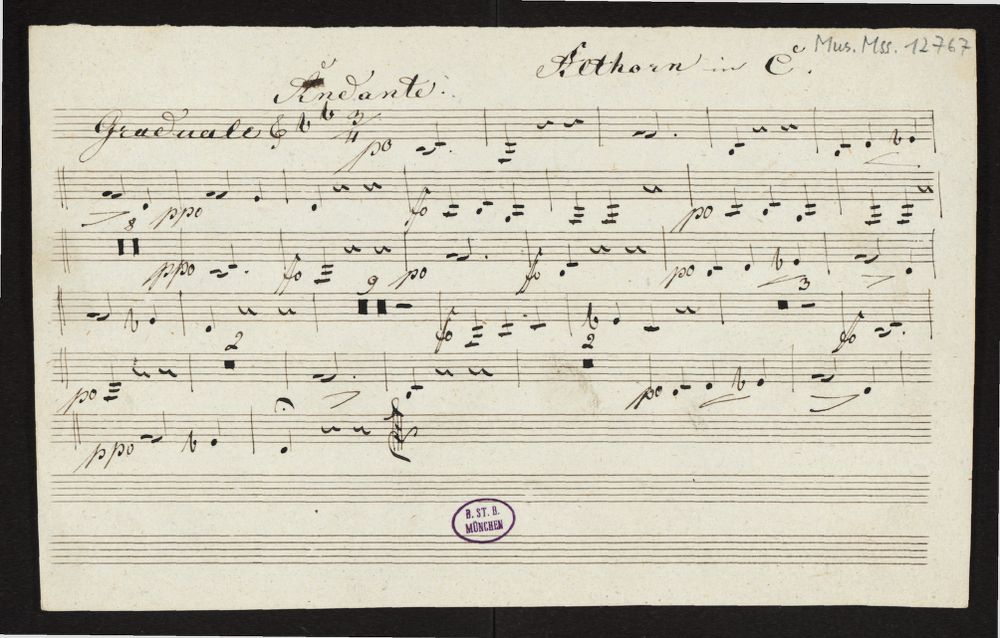 Mus. Mss. 12767
Althorn in C.
Andante.
Graduale 3/4 po
ppo fo po
8 ppo fo po fo po
9 fo 3 fo
po 2 2 po
ppo
B. ST. B.
MÜNCHEN